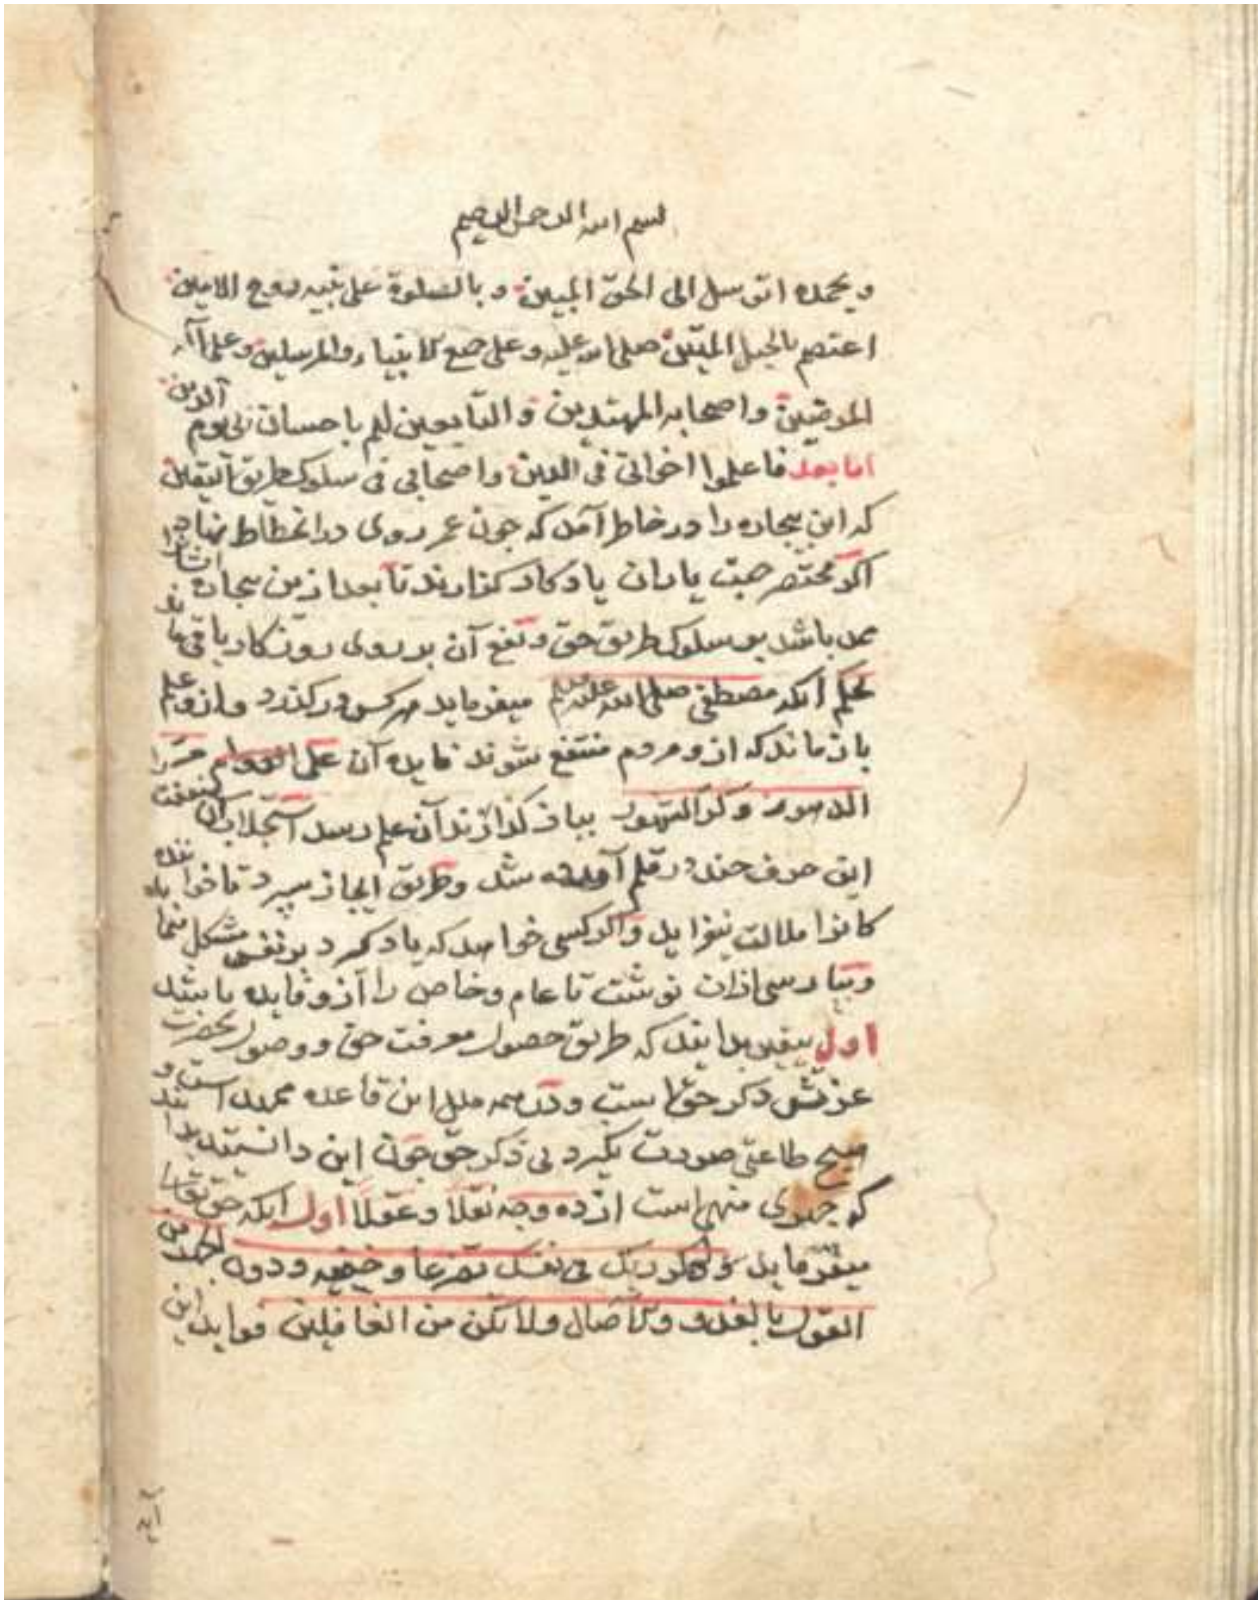 بسم الله الرحمن الرحيم
و بحمده اتوسل الى الحق المبين و بالصلوة على نبيه روح الامين
اعتصم بالحبل المتين صلى الله عليه و على جميع الانبياء والمرسلين و على آله
المرضيين و اصحابه المهتدين و التابعين لهم باحسان الى يوم الدين
اما بعد فاعلموا اخوانى فى الدين و اصحابى فى سلوك طريق اليقين
که این بیچاره را در خاطر آمد که چون عمر روی در انحطاط نهاد
اکر مختصر جهت یاران یادکار کذارند تا بعد ازین بیچاره ایشانرا
ممد باشد بر سلوک طریق حق و نفع آن بر روی روزکار باقی ماند
بحکم آنکه مصطفی صلی الله علیه وسلم میفرماید هرکس درکذرد و ازو علم
باز ماند که ازو مردم منتفع شوند فایده آن علی الدوام
الدهور و کر الشهور بباز کذارنده آن علم رسد استجلاب آن منفعت
این حرف چند در قلم آورده شد و طریق ایجاز سپرد تا خواننده
کانرا ملالت نیفزاید و اکر کسی خواهد که یاد کیرد بر نفس مشکل ننماید
و بپارسی ازان نوشت تا عام و خاص را ازو فایده باشد
اول بیقین بدانید که طریق حصول معرفت حق و وصول بحضرت
عزتش ذکر حق است و در همه ملل این قاعده ممهد است و
هیچ طاعتی صورت نکیرد بی ذکر حق چون این دانستید بدانید
که جهری منهی است از ده وجه نقلا و عقلا اول آنکه حق تعالی
میفرماید واذکر ربک فی نفسک تضرعا و خیفه و دون الجهر من
القول بالغدو والآصال ولا تکن من الغافلین فواید این
آیه